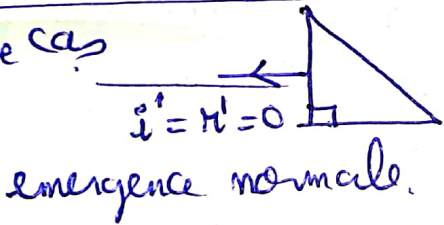 e cas
i' = r' = 0
emergence normale.